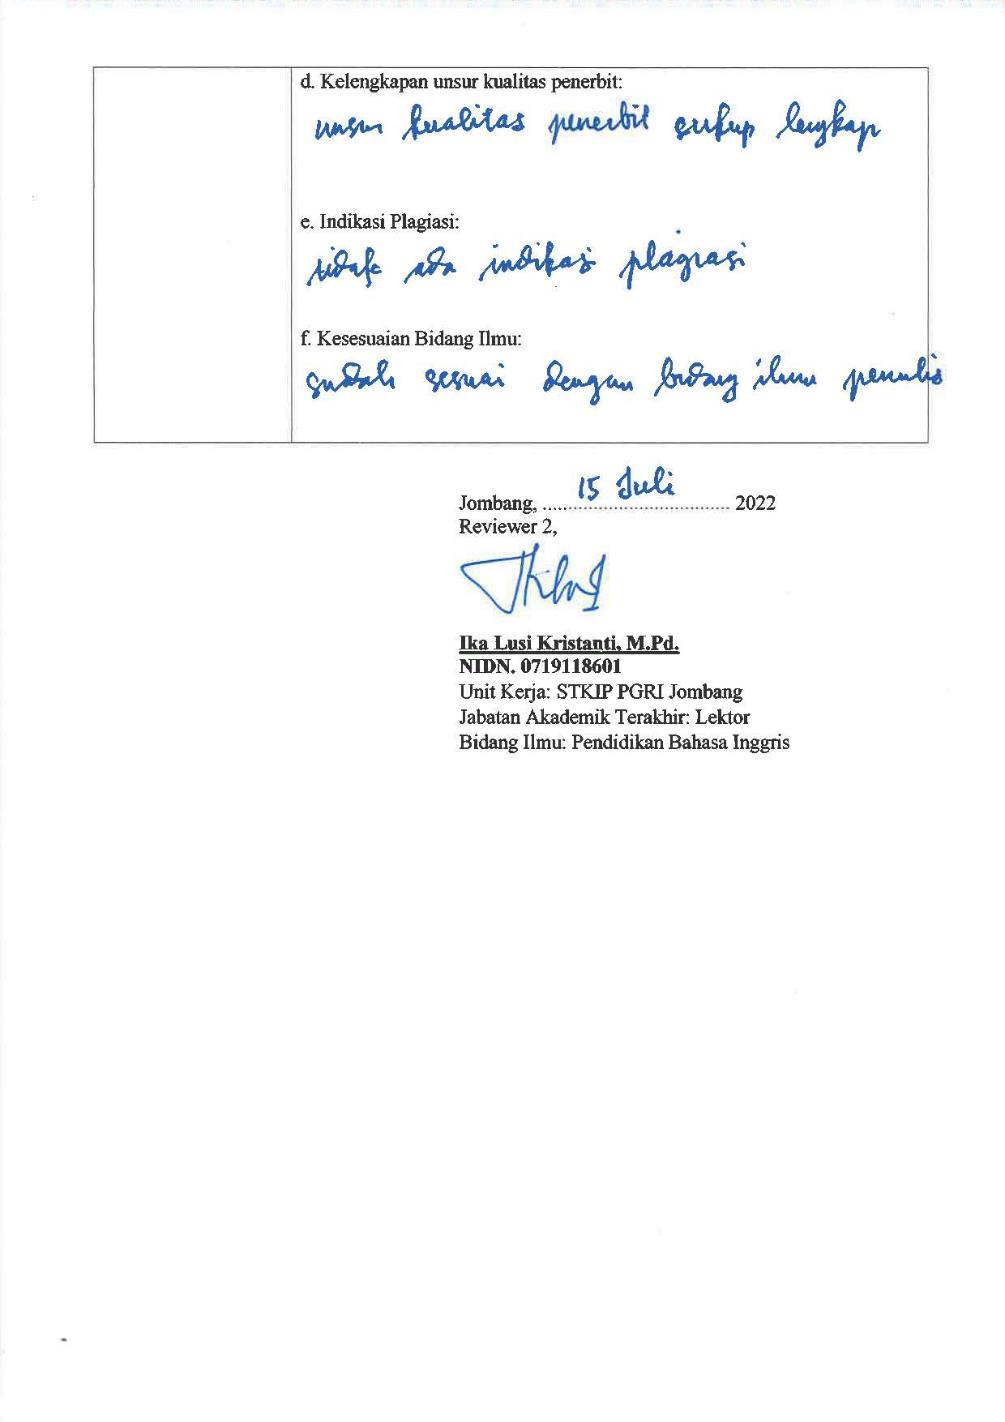 d. Kelengkapan unsur kualitas penerbit:
unsur kualitas penerbit cukup lengkap
e. Indikasi Plagiasi:
tidak ada indikasi plagiasi
f. Kesesuaian Bidang Ilmu:
sudah sesuai dengan bidang ilmu penulis
Jombang, ..... 15 Juli ..... 2022
Reviewer 2,
Ika Lusi Kristanti, M.Pd.
NIDN. 0719118601
Unit Kerja: STKIP PGRI Jombang
Jabatan Akademik Terakhir: Lektor
Bidang Ilmu: Pendidikan Bahasa Inggris